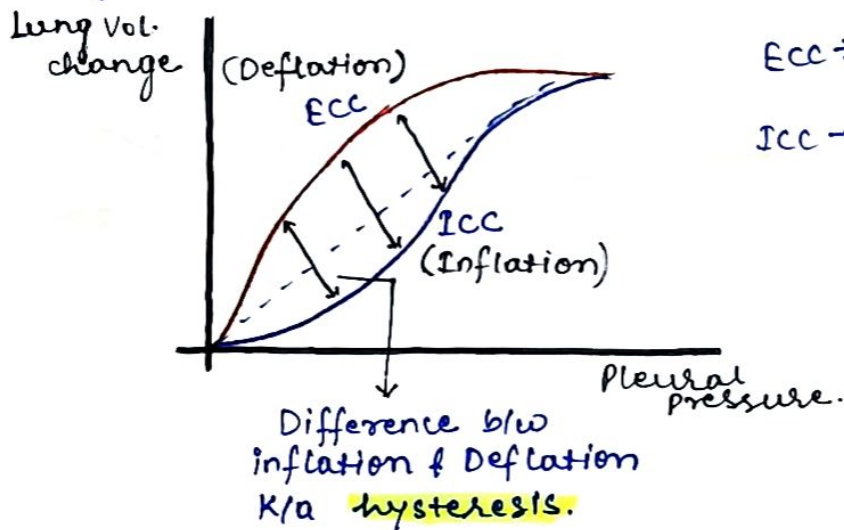 Lung Vol.
change
(Deflation)
ECC
ECC →
ICC →
ICC
(Inflation)
Pleural
pressure.
Difference b/w
inflation & Deflation
K/a hysteresis.